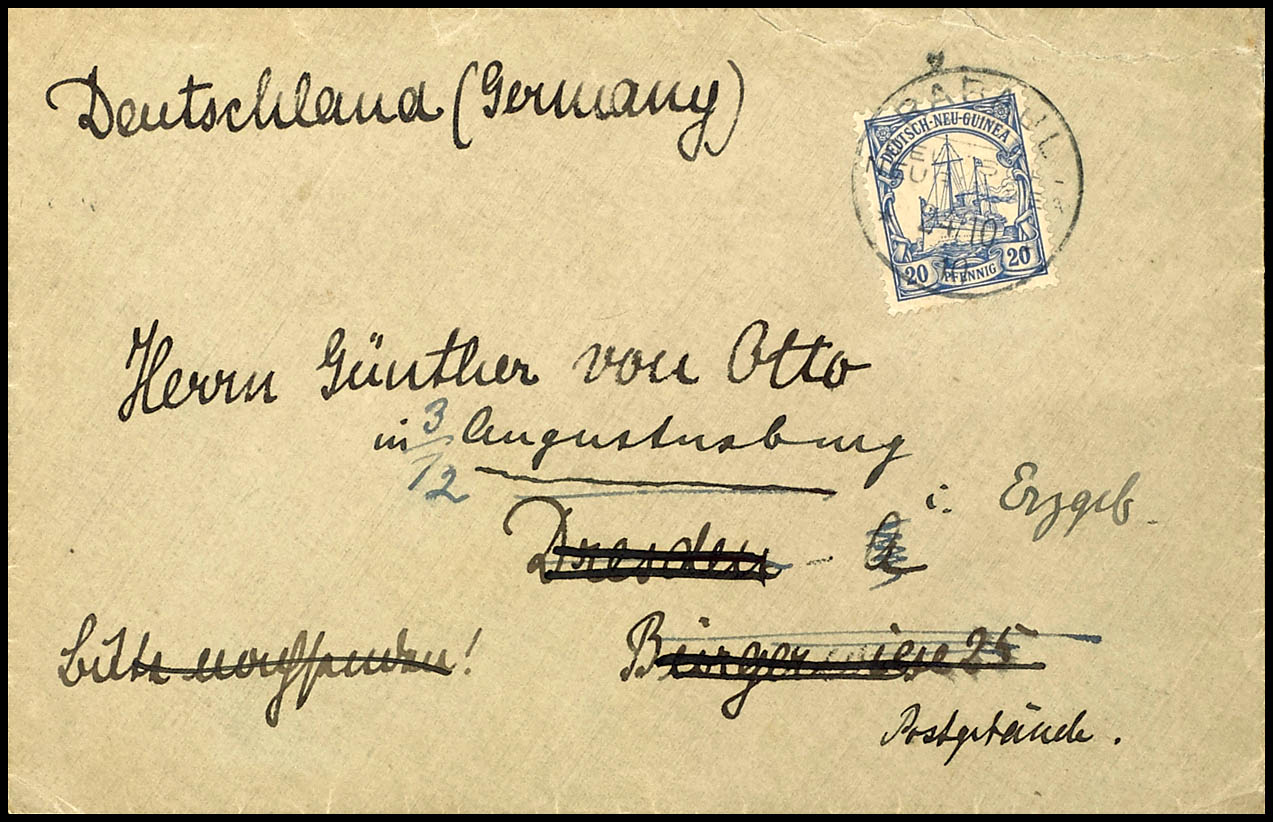 Deutschland (Germany)
RABAUL
DEUTSCH-NEU-GUINEA
20 PFENNIG 20
Herrn Günther von Otto
in Augustusburg
3/12
i. Erzgeb.
Dresden - A
Bitte nachsenden!
Bürgerwiese 25